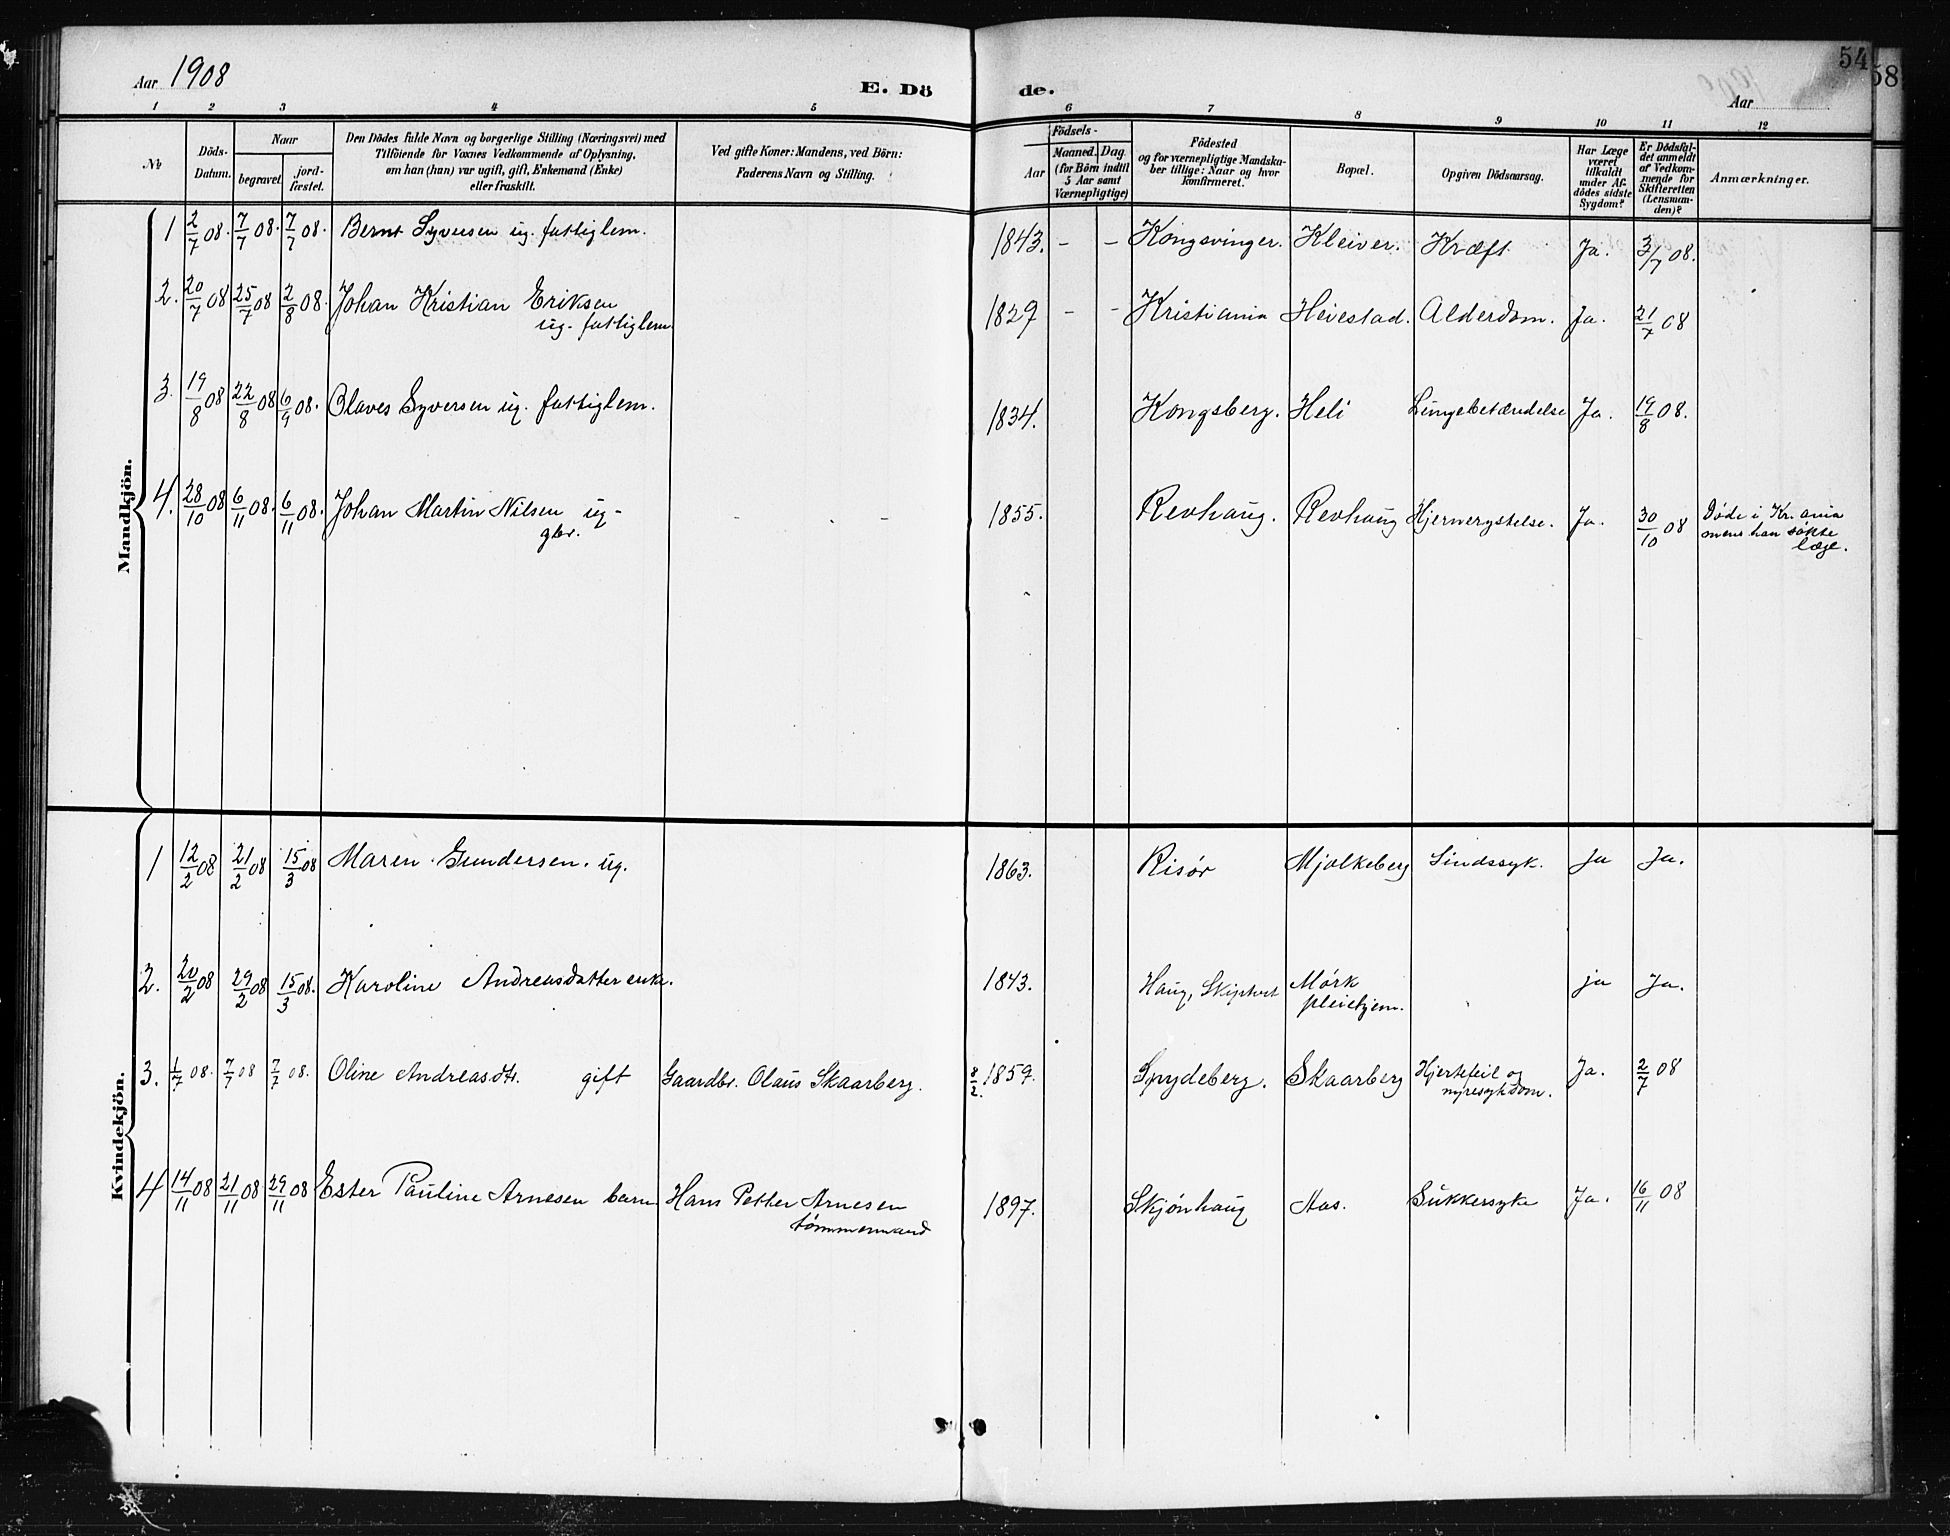 Aar 1908
E. Dö
de.
54
58
Aar
1 2 3 4 5 6 7 8 9 10 11 12
No
Döds-
Datum.
Naar
begravet.
jord-
fæstet.
Den Dödes fulde Navn og borgerlige Stilling (Næringsvei) med
Tilföiende for Voxnes Vedkommende af Oplysning,
om han (hun) var ugift, gift, Enkemand (Enke)
eller fraskilt.
Ved gifte Koner: Mandens, ved Börn:
Faderens Navn og Stilling.
Födsels-
Aar
Maaned. Dag.
(for Börn indtil
5 Aar samt
Værnepligtige)
Födested
og for værnepligtige Mandska-
ber tillige: Naar og hvor
konfirmeret.
Bopæl.
Opgiven Dödsaarsag.
Har Læge
været
tilkaldt
under Af-
dödes sidste
Sygdom?
Er Dödsfal-
det anmeldt
af Vedkom-
mende for
Skifteretten
(Lensman-
den)?
Anmærkninger.
Mandkjön.
1 2/7 08. 7/7 08. 7/7 08. Bernt Syversen ug. fattiglem. 1843. - - Kongsvinger. Kleiver. Kræft Ja. 3/7 08.
2. 20/7 08 25/7 08 2/8 08. Johan Kristian Eriksen 1829 - - Kristiania Heiestad. Alderdom. Ja. 21/7 08
ug. fattiglem
3. 19/8 08 22/8 08 6/9 08. Olaves Syversen ug. fattiglem. 1834. Kongsberg. Heli Lungebetændelse Ja. 19/8 08.
4. 28/10 08 6/11 08. 6/11 08. Johan Martin Nilsen ug - - - 1855. Revhaug. Revhaug Hjernerystelse. Ja. 30/10 08 Døde i Kr.ania
gbr. mens han søkte
læge.
Kvindekjön.
1 12/2 08 21/2 08 15/3 08 Maren Gundersen. ug. 1863. Risør Mjølkeberg Sindssyk. Ja Ja.
2. 20/2 08 29/2 08 15/3 08. Karoline Andreasdatter enke. 1843. Haug, Skiptvet Mørk ja Ja.
pleiehjem.
3. 1/7 08. 7/7 08 7/7 08. Oline Andreasdtr. gift Gaardbr. Olaus Skaarberg. 8/2. 1859. Spydeberg. Skaarberg Hjertefeil og Ja. 2/7 08
nyresykdom.
4 14/11 08 21/11 08 29/11 08 Ester Pauline Arnesen barn Hans Petter Arnesen 1897. Skjønhaug Aas. Sukkersyke Ja. 16/11 08
tømmermand